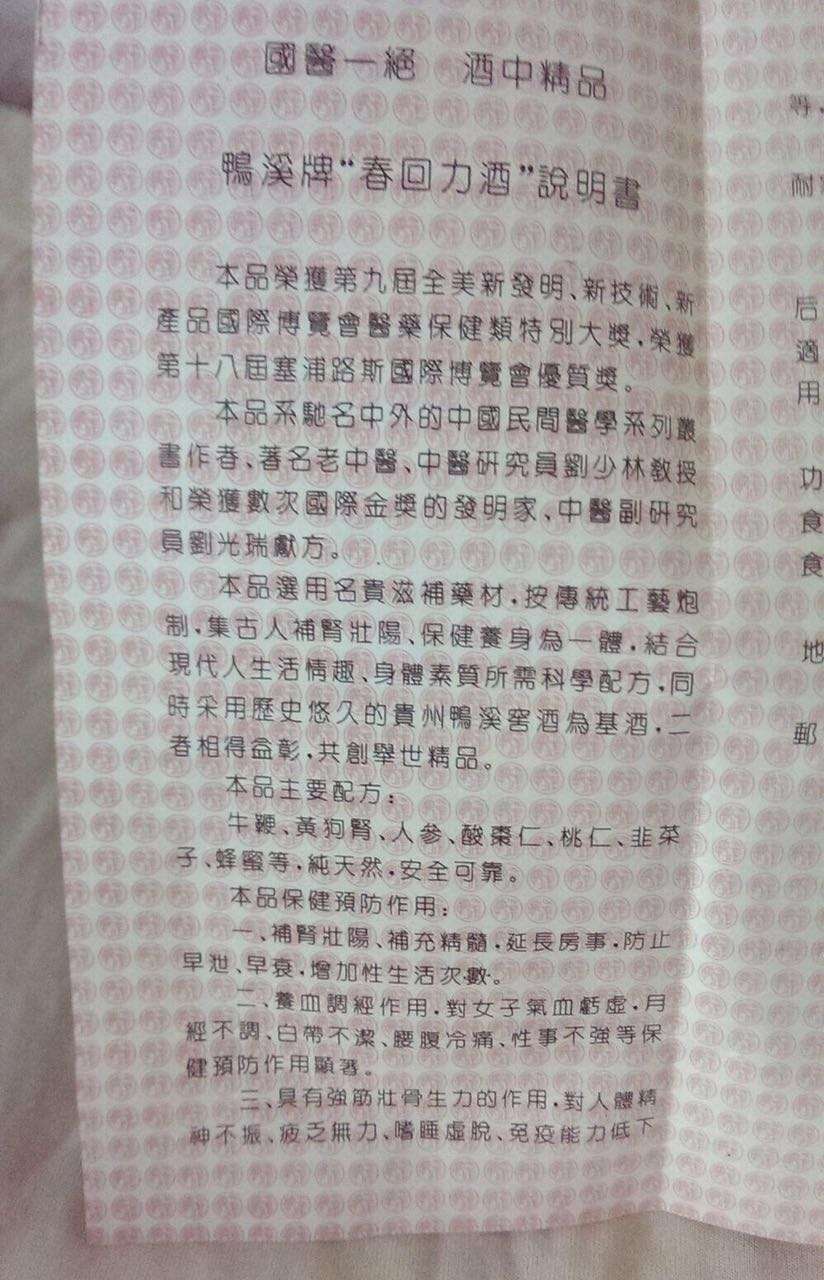 國醫一絕　酒中精品
鴨溪牌“春回力酒”說明書
本品榮獲第九屆全美新發明、新技術、新
產品國際博覽會醫藥保健類特別大獎，榮獲
第十八屆塞浦路斯國際博覽會優質獎。
本品系馳名中外的中國民間醫學系列叢
書作者、著名老中醫、中醫研究員劉少林教授
和榮獲數次國際金獎的發明家、中醫副研究
員劉光瑞獻方。
本品選用名貴滋補藥材，按傳統工藝炮
制，集古人補腎壯陽、保健養身為一體，結合
現代人生活情趣、身體素質所需科學配方，同
時采用歷史悠久的貴州鴨溪窖酒為基酒，二
者相得益彰，共創舉世精品。
本品主要配方：
牛鞭、黃狗腎、人參、酸棗仁、桃仁、韭菜
子、蜂蜜等，純天然，安全可靠。
本品保健預防作用：
一、補腎壯陽、補充精髓，延長房事，防止
早泄、早衰，增加性生活次數。
二、養血調經作用，對女子氣血虧虛，月
經不調、白帶不潔、腰腹冷痛、性事不強等保
健預防作用顯著。
三、具有強筋壯骨生力的作用，對人體精
神不振、疲乏無力、嗜睡虛脫、免疫能力低下
等，
耐
后
適
用
功
食
食
地
郵